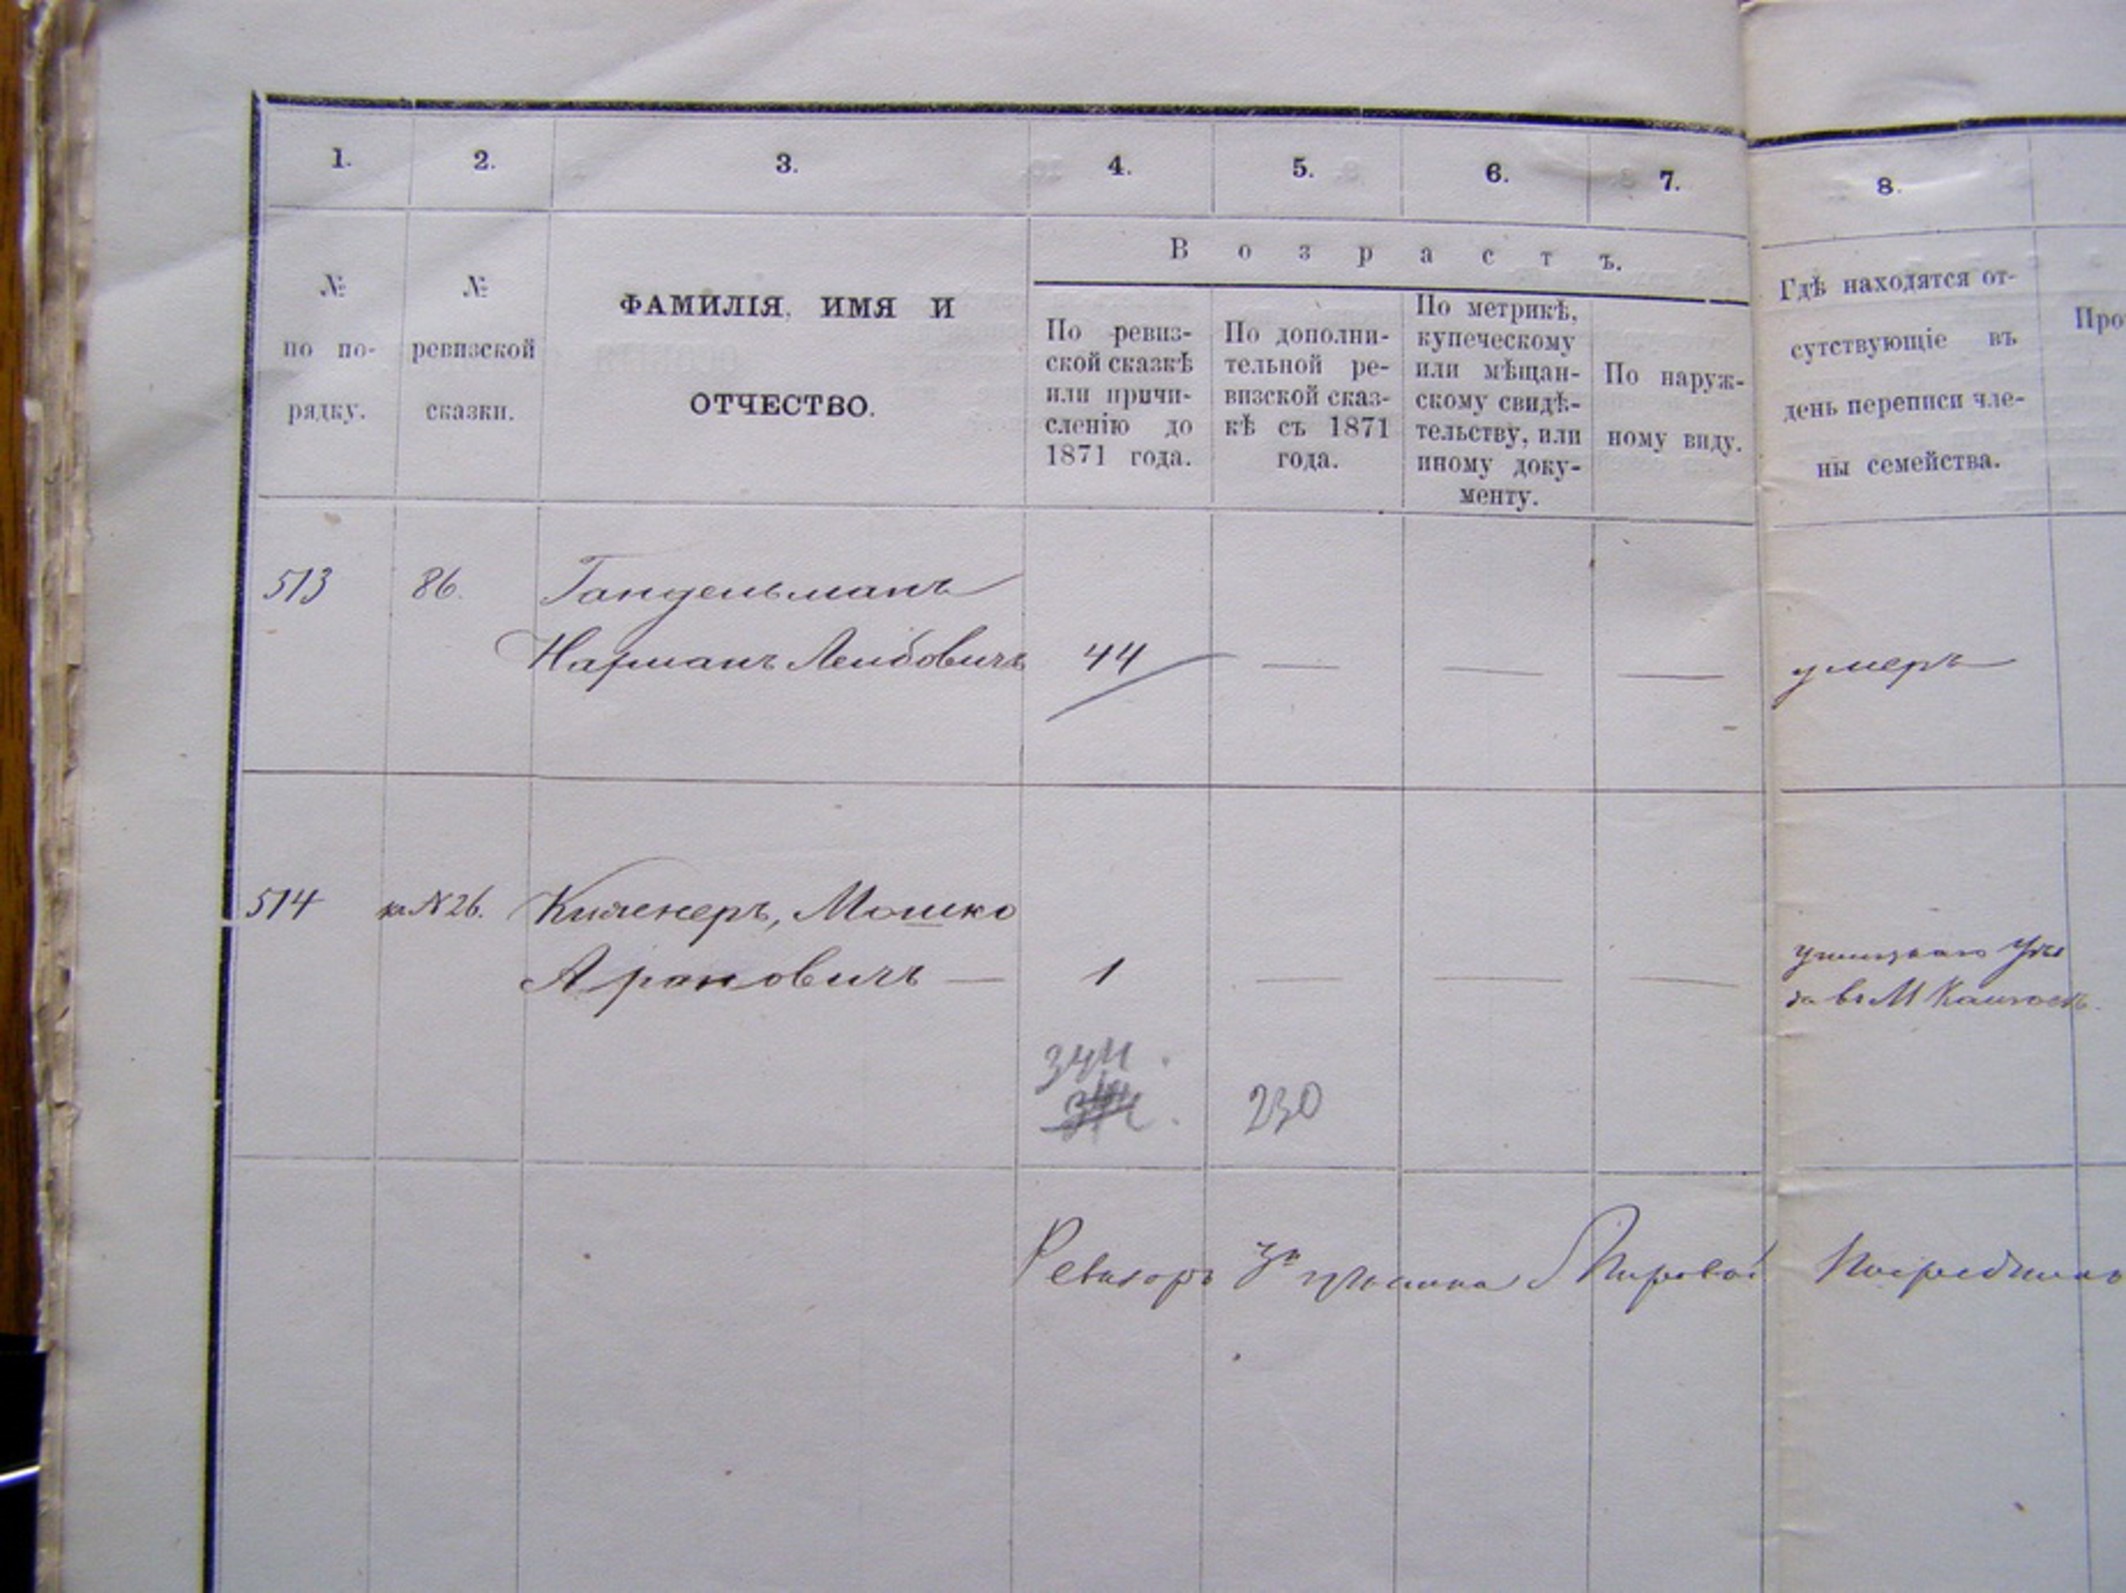 1. 2. 3. 4. 5. 6. 7. 8.
Возрастъ.
№ по по-
рядку.
№ ревизской
сказки.
ФАМИЛІЯ, ИМЯ И
ОТЧЕСТВО.
По ревиз-
ской сказкѣ
или причи-
сленію до
1871 года.
По дополни-
тельной ре-
визской сказ-
кѣ съ 1871
года.
По метрикѣ,
купеческому
или мѣщан-
скому свидѣ-
тельству, или
иному доку-
менту.
По наруж-
ному виду.
Гдѣ находятся от-
сутствующіе въ
день переписи чле-
ны семейства.
Про
513 86. Гандельманъ
Нахманъ Лейбовичъ 44 — — — умеръ
514 N 26. Мошко
Ароновичъ — 1 — — —
въ М
344.
230
Ревизоръ Мировой Посредникъ